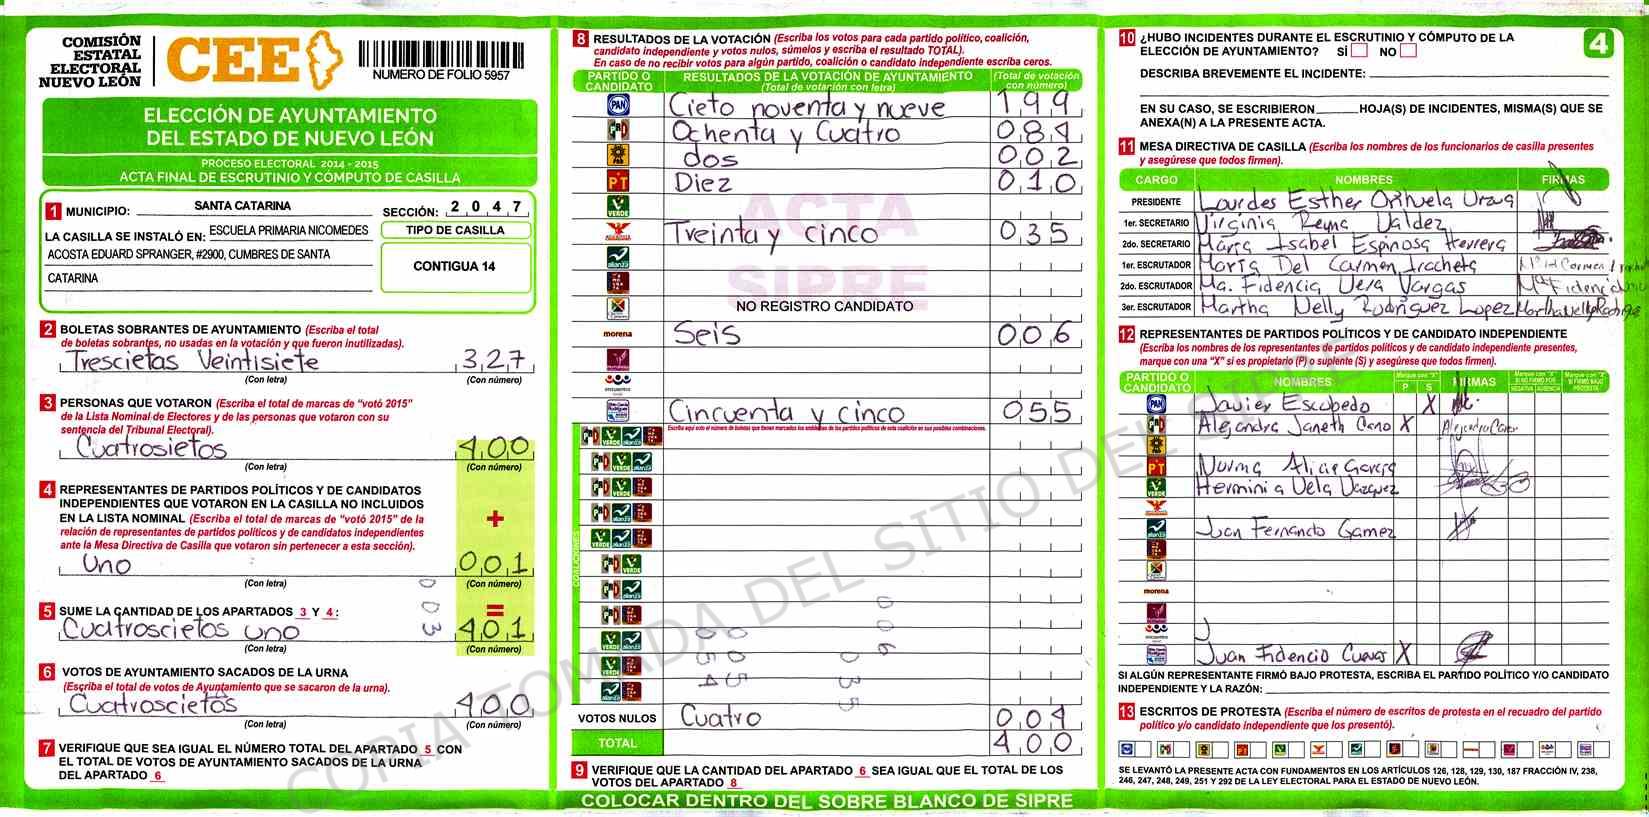 COMISIÓN
ESTATAL
ELECTORAL
NUEVO LEÓN
CEE
NUMERO DE FOLIO 5957
ELECCIÓN DE AYUNTAMIENTO
DEL ESTADO DE NUEVO LEÓN
PROCESO ELECTORAL 2014 - 2015
ACTA FINAL DE ESCRUTINIO Y CÓMPUTO DE CASILLA
1 MUNICIPIO: SANTA CATARINA SECCIÓN: 2 0 4 7
LA CASILLA SE INSTALÓ EN: ESCUELA PRIMARIA NICOMEDES
ACOSTA EDUARD SPRANGER, #2900, CUMBRES DE SANTA
CATARINA
TIPO DE CASILLA
CONTIGUA 14
2 BOLETAS SOBRANTES DE AYUNTAMIENTO (Escriba el total
de boletas sobrantes, no usadas en la votación y que fueron inutilizadas).
Trescietas Veintisiete 3,2,7
(Con letra) (Con número)
3 PERSONAS QUE VOTARON (Escriba el total de marcas de "votó 2015"
de la Lista Nominal de Electores y de las personas que votaron con su
sentencia del Tribunal Electoral).
Cuatrosietos 4,0,0
(Con letra) (Con número)
4 REPRESENTANTES DE PARTIDOS POLÍTICOS Y DE CANDIDATOS
INDEPENDIENTES QUE VOTARON EN LA CASILLA NO INCLUIDOS
EN LA LISTA NOMINAL (Escriba el total de marcas de "votó 2015" de la
relación de representantes de partidos políticos y de candidatos independientes
ante la Mesa Directiva de Casilla que votaron sin pertenecer a esta sección).
+
Uno 0,0,1
(Con letra) (Con número)
5 SUME LA CANTIDAD DE LOS APARTADOS 3 Y 4: =
Cuatroscietos uno 4,0,1
(Con letra) (Con número)
6 VOTOS DE AYUNTAMIENTO SACADOS DE LA URNA
(Escriba el total de votos de Ayuntamiento que se sacaron de la urna).
Cuatroscietos 4,0,0
(Con letra) (Con número)
7 VERIFIQUE QUE SEA IGUAL EL NÚMERO TOTAL DEL APARTADO 5 CON
EL TOTAL DE VOTOS DE AYUNTAMIENTO SACADOS DE LA URNA
DEL APARTADO 6
8 RESULTADOS DE LA VOTACIÓN (Escriba los votos para cada partido político, coalición,
candidato independiente y votos nulos, súmelos y escriba el resultado TOTAL).
En caso de no recibir votos para algún partido, coalición o candidato independiente escriba ceros.
PARTIDO O CANDIDATO
RESULTADOS DE LA VOTACIÓN DE AYUNTAMIENTO
(Total de votación con letra)
(Total de votación con número)
PAN Cieto noventa y nueve 1,9,9
PRD Ochenta y Cuatro 0,8,4
dos 0,0,2
PT Diez 0,1,0
VERDE
Treinta y cinco 0,3,5
alianza
NO REGISTRO CANDIDATO
morena Seis 0,0,6
encuentro
Cincuenta y cinco 0,5,5
Escriba aquí solo el número de boletas que tienen marcados los emblemas de los partidos políticos de esta coalición en sus posibles combinaciones.
COALICIONES
VOTOS NULOS Cuatro 0,0,4
TOTAL 4,0,0
ACTA
SIPRE
9 VERIFIQUE QUE LA CANTIDAD DEL APARTADO 6 SEA IGUAL QUE EL TOTAL DE LOS
VOTOS DEL APARTADO 8
COLOCAR DENTRO DEL SOBRE BLANCO DE SIPRE
10 ¿HUBO INCIDENTES DURANTE EL ESCRUTINIO Y CÓMPUTO DE LA
ELECCIÓN DE AYUNTAMIENTO? SÍ NO
4
DESCRIBA BREVEMENTE EL INCIDENTE:
EN SU CASO, SE ESCRIBIERON HOJA(S) DE INCIDENTES, MISMA(S) QUE SE
ANEXA(N) A LA PRESENTE ACTA.
11 MESA DIRECTIVA DE CASILLA (Escriba los nombres de los funcionarios de casilla presentes
y asegúrese que todos firmen).
CARGO NOMBRES FIRMAS
PRESIDENTE Lourdes Esther Orihuela Urzua
1er. SECRETARIO Virginia Reyna Valdez
2do. SECRETARIO Maria Isabel Espinosa Herrera
1er. ESCRUTADOR Maria Del Carmen Iracheta
2do. ESCRUTADOR Ma. Fidencia Vera Vargas
3er. ESCRUTADOR Martha Nelly Rodriguez Lopez
12 REPRESENTANTES DE PARTIDOS POLÍTICOS Y DE CANDIDATO INDEPENDIENTE
(Escriba los nombres de los representantes de partidos políticos y de candidato independiente presentes,
marque con una "X" si es propietario (P) o suplente (S) y asegúrese que todos firmen).
PARTIDO O CANDIDATO
NOMBRES
Marque con "X"
P S
FIRMAS
Marque con "X" SI NO FIRMÓ POR
NEGATIVA AUSENCIA
Marque con "X" SI FIRMÓ BAJO PROTESTA
PAN Javier Escobedo X
Alejandra Janeth Cano X Alejandra Cano
PT Norma Alicia Garcia
VERDE Herminia Vela Vazquez
Juan Fernando Gamez
morena
encuentro
Juan Fidencio Cuevas X
SI ALGÚN REPRESENTANTE FIRMÓ BAJO PROTESTA, ESCRIBA EL PARTIDO POLÍTICO Y/O CANDIDATO
INDEPENDIENTE Y LA RAZÓN:
13 ESCRITOS DE PROTESTA (Escriba el número de escritos de protesta en el recuadro del partido
político y/o candidato independiente que los presentó).
SE LEVANTÓ LA PRESENTE ACTA CON FUNDAMENTOS EN LOS ARTÍCULOS 126, 128, 129, 130, 187 FRACCIÓN IV, 238,
246, 247, 248, 249, 251 Y 292 DE LA LEY ELECTORAL PARA EL ESTADO DE NUEVO LEÓN.
COPIA TOMADA DEL SITIO DEL SIPRE